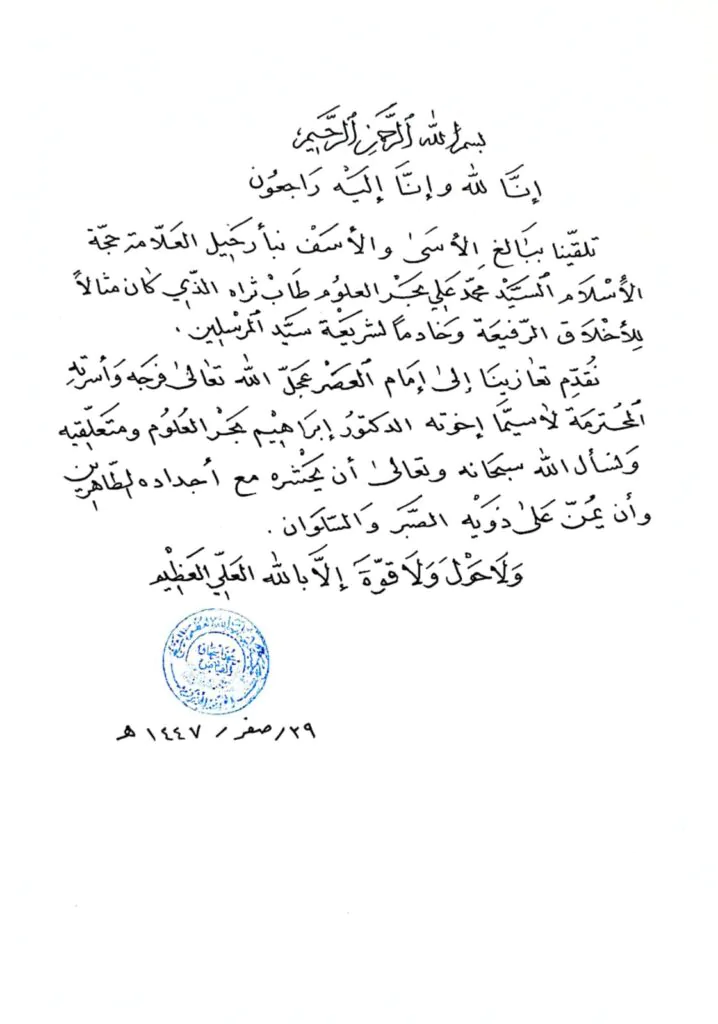 بسم الله الرحمن الرحيم
إنّا لله وإنّا إليه راجعون
تلقّينا ببالغ الأسىٰ والأسف نبأ رحيل العلّامة حجّة
الأسلام السيّد محمّد علي بحر العلوم طاب ثراه الذي كان مثالاً
للأخلاق الرّفيعة وخادماً لشريعة سيّد المرسلين.
نُقدّم تعازينا إلىٰ إمام العصر عجّل الله تعالىٰ فرجه وأسرته
المحترمة لاسيّما إخوته الدكتور إبراهيم بحر العلوم ومتعلّقيه
ونسأل الله سبحانه وتعالىٰ أن يحشره مع أجداده الطّاهرين
وأن يمُنّ علىٰ ذويه الصّبر والسّلوان.
ولا حول ولا قوّة إلّا بالله العليّ العظيم
محمد إسحاق
الفياض
٢٩/صفر/١٤٤٧ هـ